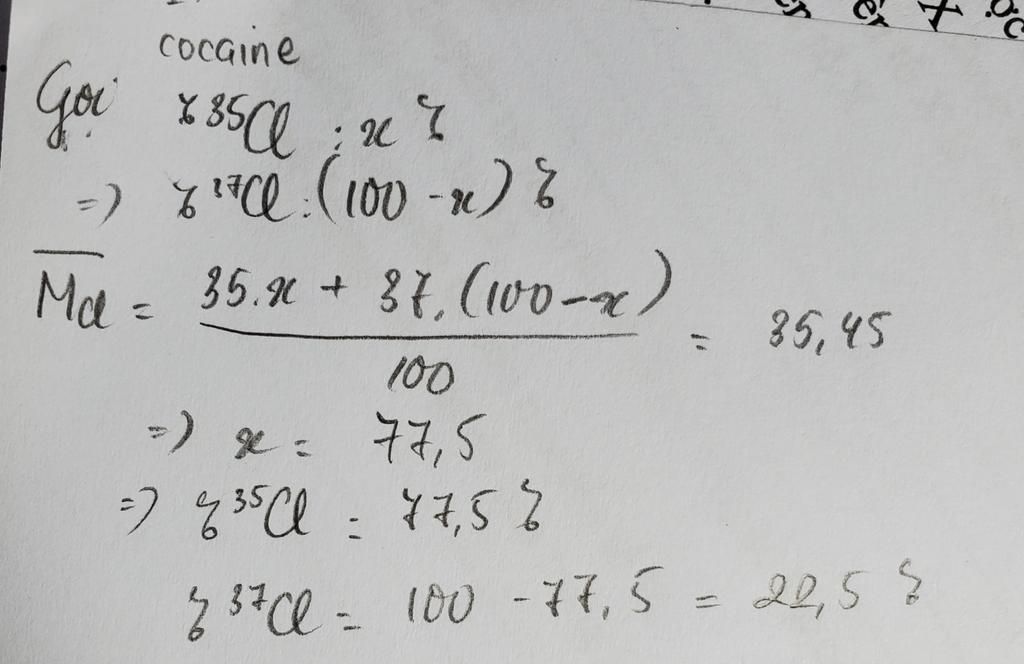 cocaine
Gọi %35Cl : x %
=) %37Cl : (100 - x) %
MCl = 35.x + 37.(100 - x) / 100 = 35,45
=) x = 77,5
=) %35Cl = 77,5 %
%37Cl = 100 - 77,5 = 22,5 %